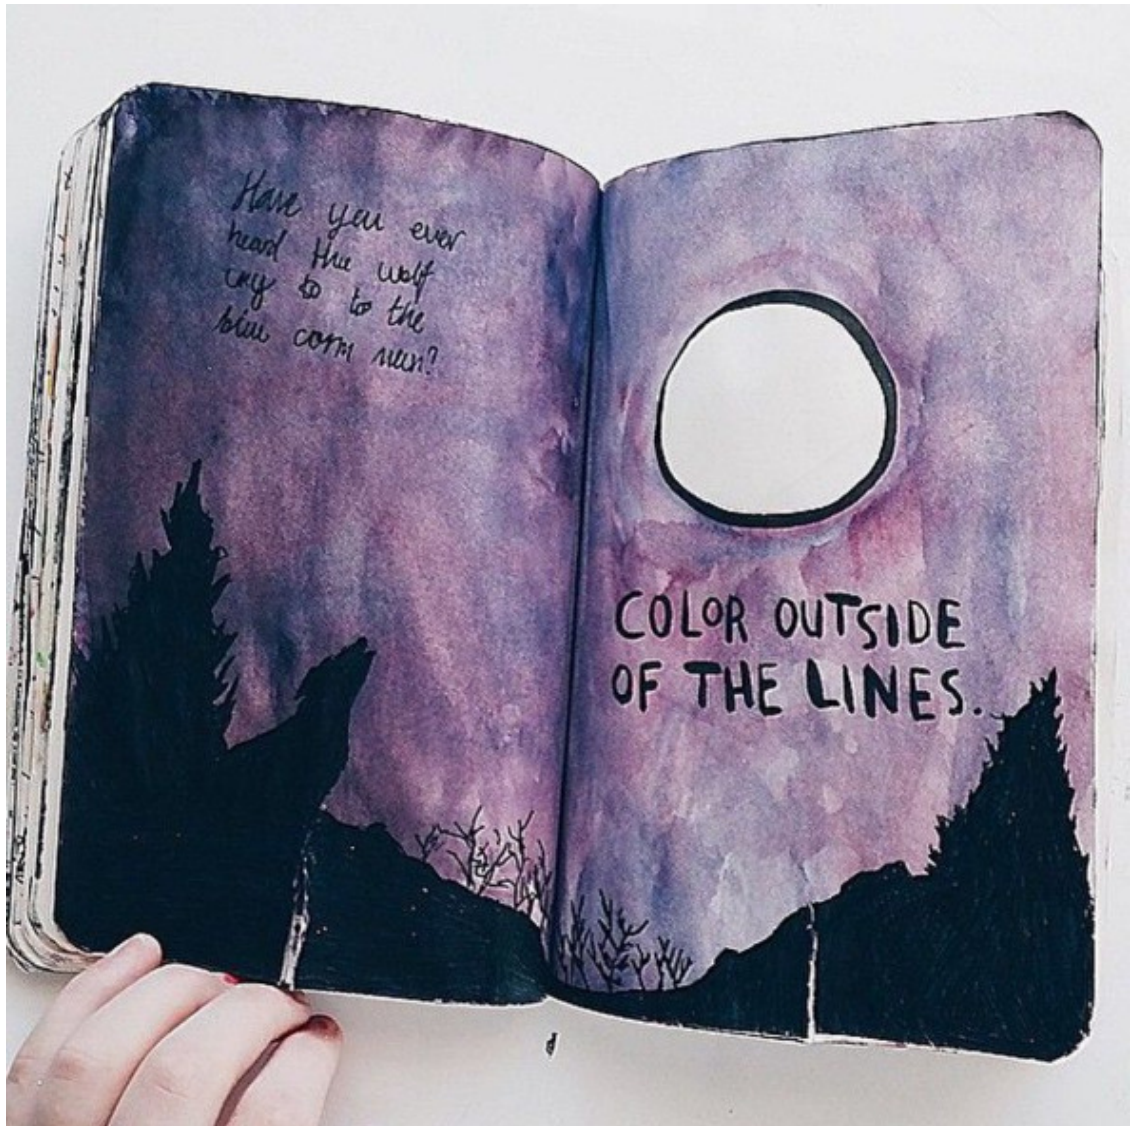 Have you ever
heard the wolf
cry to to the
blue corn
COLOR OUTSIDE
OF THE LINES.